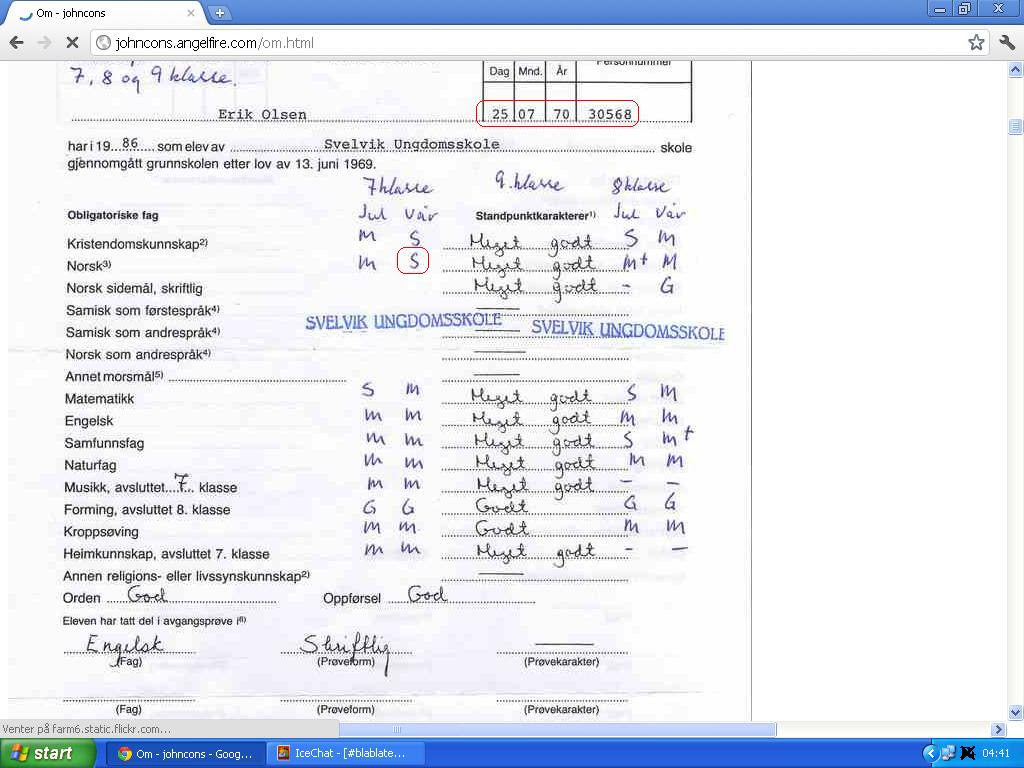 Om - johncons
johncons.angelfire.com/om.html
7, 8 og 9 klasse.
Dag Mnd. År Personnummer
Erik Olsen 25 07 70 30568
har i 19 86 som elev av Svelvik Ungdomsskole skole
gjennomgått grunnskolen etter lov av 13. juni 1969.
7klasse 9. klasse 8klasse
Obligatoriske fag Jul Vår Standpunktkarakterer1) Jul Vår
Kristendomskunnskap2) M S Meget godt S M
Norsk3) M S Meget godt M+ M
Norsk sidemål, skriftlig Meget godt - G
Samisk som førstespråk4)
SVELVIK UNGDOMSSKOLE SVELVIK UNGDOMSSKOLE
Samisk som andrespråk4)
Norsk som andrespråk4)
Annet morsmål5)
Matematikk S M Meget godt S M
Engelsk M M Meget godt M M
Samfunnsfag M M Meget godt S M+
Naturfag M M Meget godt M M
Musikk, avsluttet 7 klasse M M Meget godt - -
Forming, avsluttet 8. klasse G G Godt G G
Kroppsøving M M Godt M M
Heimkunnskap, avsluttet 7. klasse M M Meget godt - -
Annen religions- eller livssynskunnskap2)
Orden God Oppførsel God
Eleven har tatt del i avgangsprøve i6)
Engelsk Skriftlig
(Fag) (Prøveform) (Prøvekarakter)
(Fag) (Prøveform) (Prøvekarakter)
Venter på farm6.static.flickr.com...
start Om - johncons - Goog... IceChat - [#blablate... 04:41